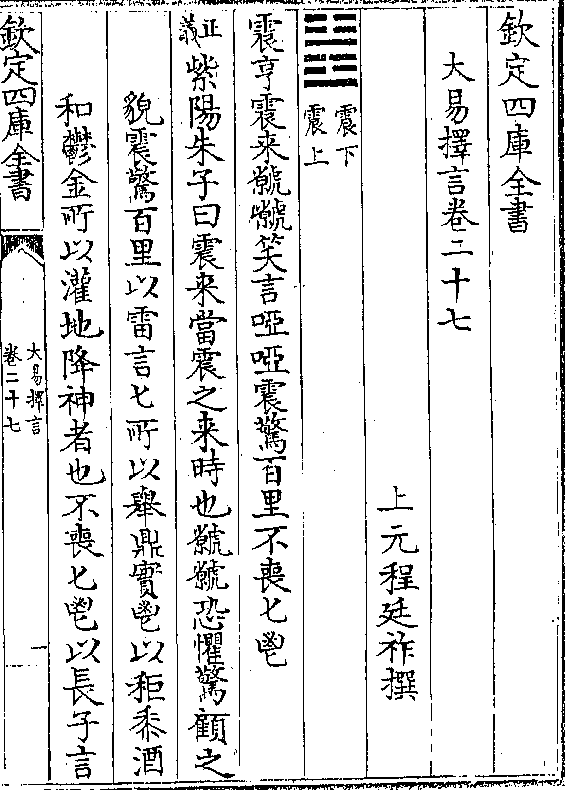 欽定四庫全書
大易擇言卷二十七
上元程廷祚撰
震下
震上
震亨震來虩虩笑言啞啞震驚百里不喪匕鬯
正義
紫陽朱子曰震來當震之來時也虩虩恐懼驚顧之
貌震驚百里以雷言匕所以舉鼎實鬯以秬黍酒
和鬱金所以灌地降神者也不喪匕鬯以長子言
欽定四庫全書
大易擇言
卷二十七
一